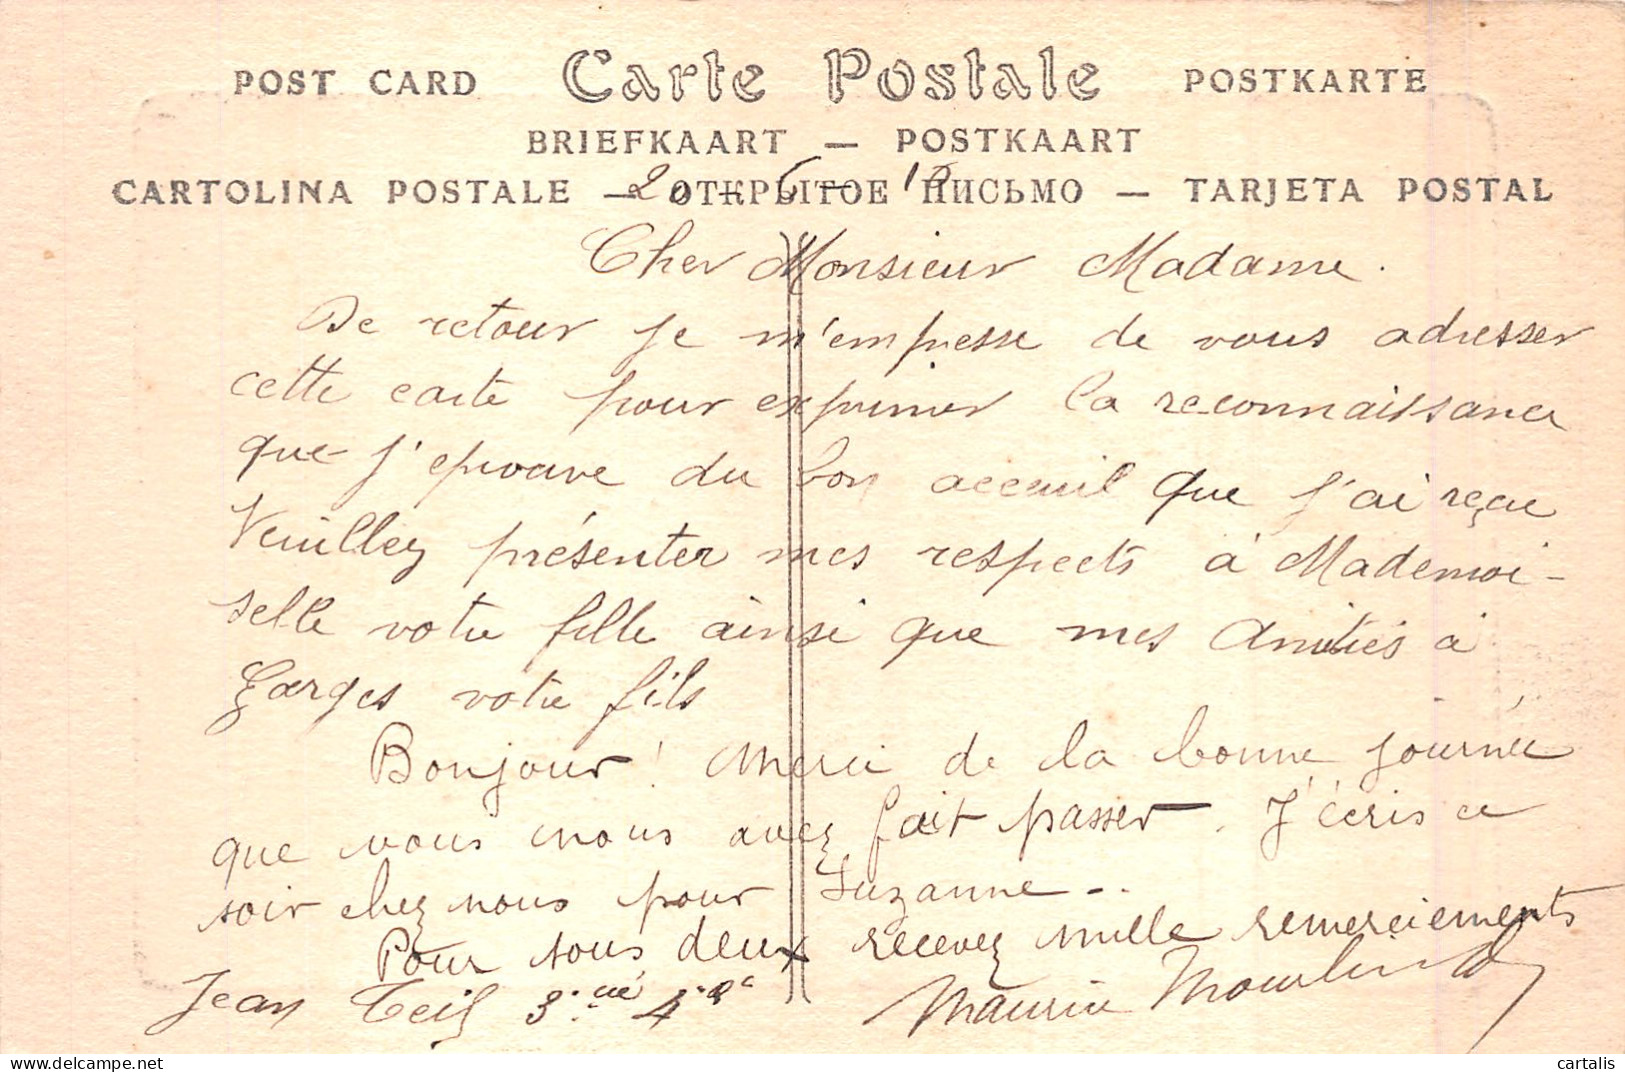 POST CARD Carte Postale POSTKARTE
BRIEFKAART — POSTKAART
CARTOLINA POSTALE — ОТКРЫТОЕ ПИСЬМО — TARJETA POSTAL
Cher Monsieur Madame.
De retour je m'empresse de vous adresser
cette carte pour exprimer la reconnaissance
que j'eprouve du bon acceuil que j'ai reçue
Veuillez présenter mes respects à Mademoi-
selle votre fille ainsi que mes Amitiés à
votre fils
Bonjour! Merci de la bonne journée
que vous nous avez fait passer. J'écris ce
soir chez nous pour Suzanne..
Pour nous deux recevez mille remerciements
Jean Maurice
cartalis